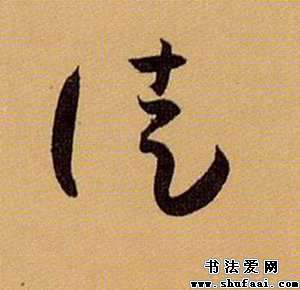 徒
书法爱网
www.shufaai.com